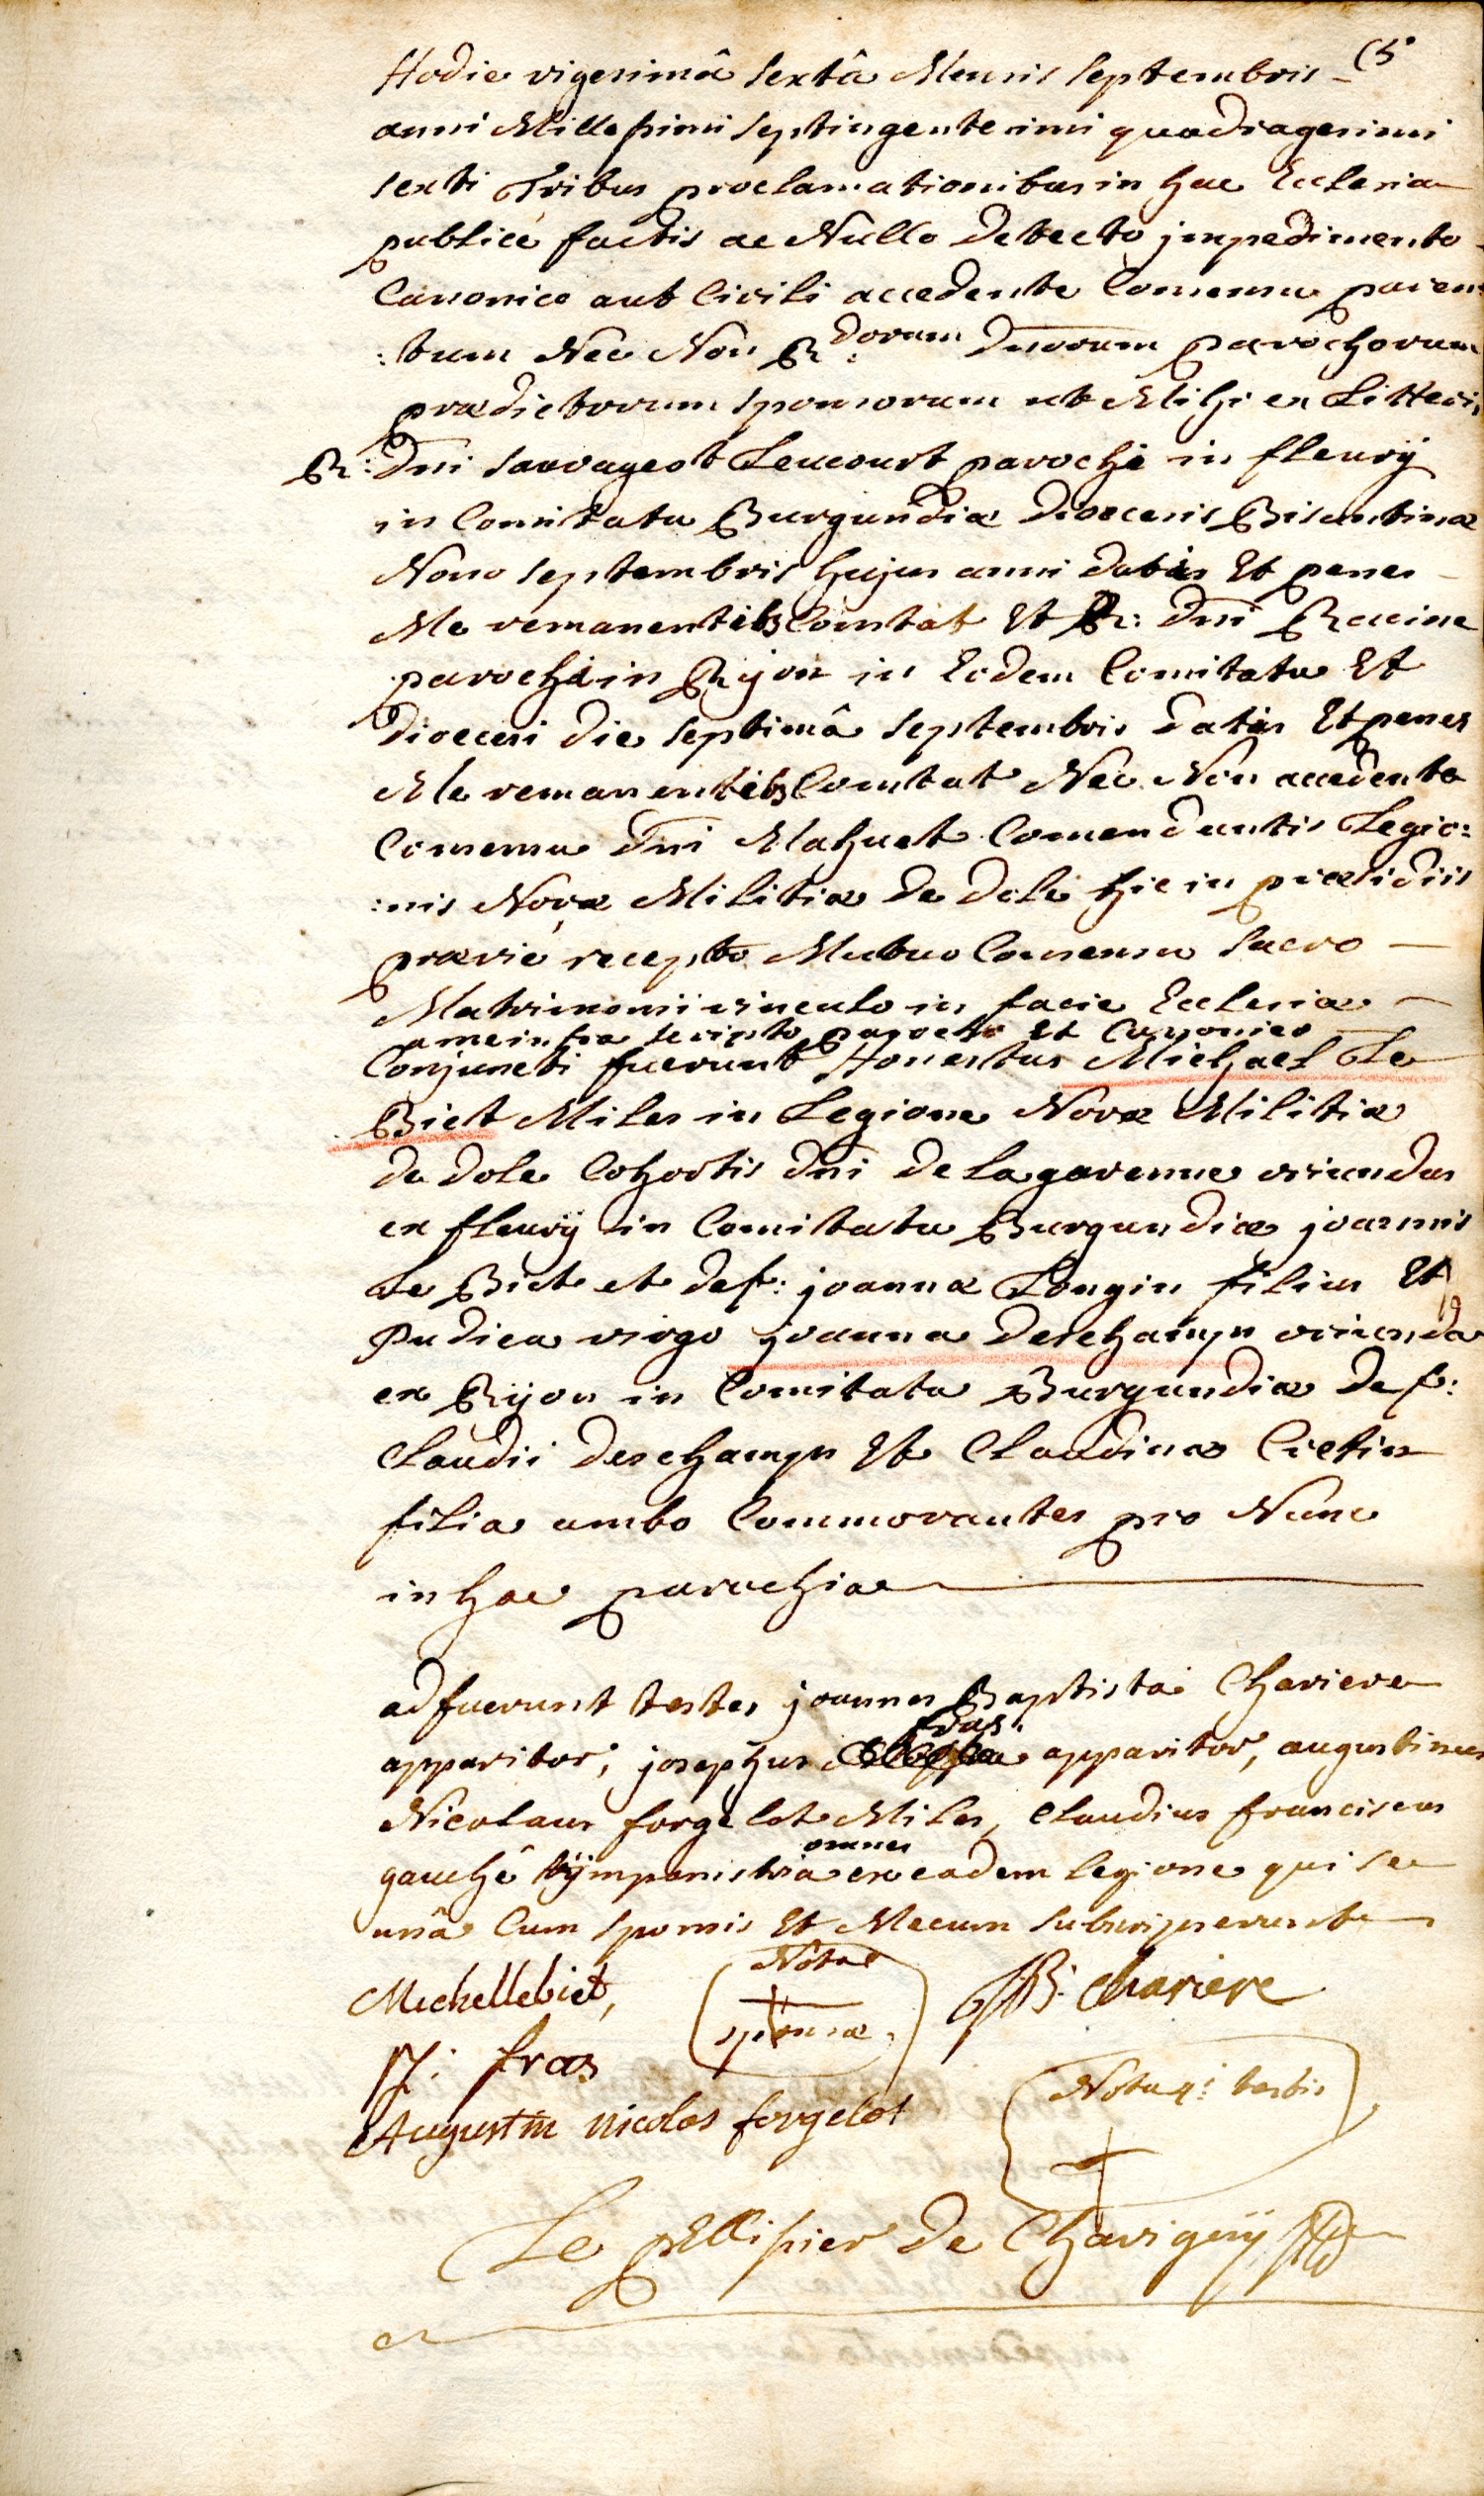 Hodie vigesimâ sextâ Mensis septembris –
anni Millesimi septingentesimi quadragesimi
sexti Tribus proclamationibus in hac Ecclesia
publicè factis ac Nullo detecto jmpedimento –
Canonico aut Civili accedente Consensu paren
:tum Nec Non R:dorum dnorum parochorum
prædictorum sponsorum ut Mihi ex Litteris
R: Dni sauvageot Leucourt parochi in fleurÿ
in Comitatu Burgundiæ dioecesis Bisuntinæ
Nono septembris hujus anni datis Et penes –
Me remanentibs Constat Et R: Dni Racine
parochi in Rijon in Eodem Comitatu Et
dioecesi die septimâ septembris datis Et penes
Me remanentibs Constat Nec Non accedente
Consensu Dni Mahuet Comendantis Legio:
:nis Novæ Militiæ de dole hic in præsidiis
prævie recepto Mutuo Consensu sacro –
Matrimonii vinculo in facie Ecclesiæ –
a me infra scripto parocho Et Canonico
Conjuncti fuerunt Honestus Michael Le
Biet Miles in Legione Novæ Militiæ
de dole Cohortis dni de lagarenne oriundus
ex fleurÿ in Comitatu Burgundiæ joannis
Le Biet et def: joannæ Longin filius Et
Pudica virgo joanna deschamps oriunda
ex Rijon in Comitatu Burgundiæ def:
Claudii deschamps Et Claudinæ Cretin
filia ambo Commorantes pro Nunc
in hac parochia
adfuerunt testes joannes Baptista Chariere
fras.
apparitor, josephus apparitor, augustinus
Nicolaus forgelot Miles, Claudius franciscus
omnes
gauchê tÿmpanistria ex eadem legione qui se
unâ Cum sponsis Et Mecum subscripserunt
Michellebiet, Nota JB. Chariere
sponsæ.
J: fras
Nota 4i testis
Augustin nicolas forgelot
Le pellissier de Chavignÿ